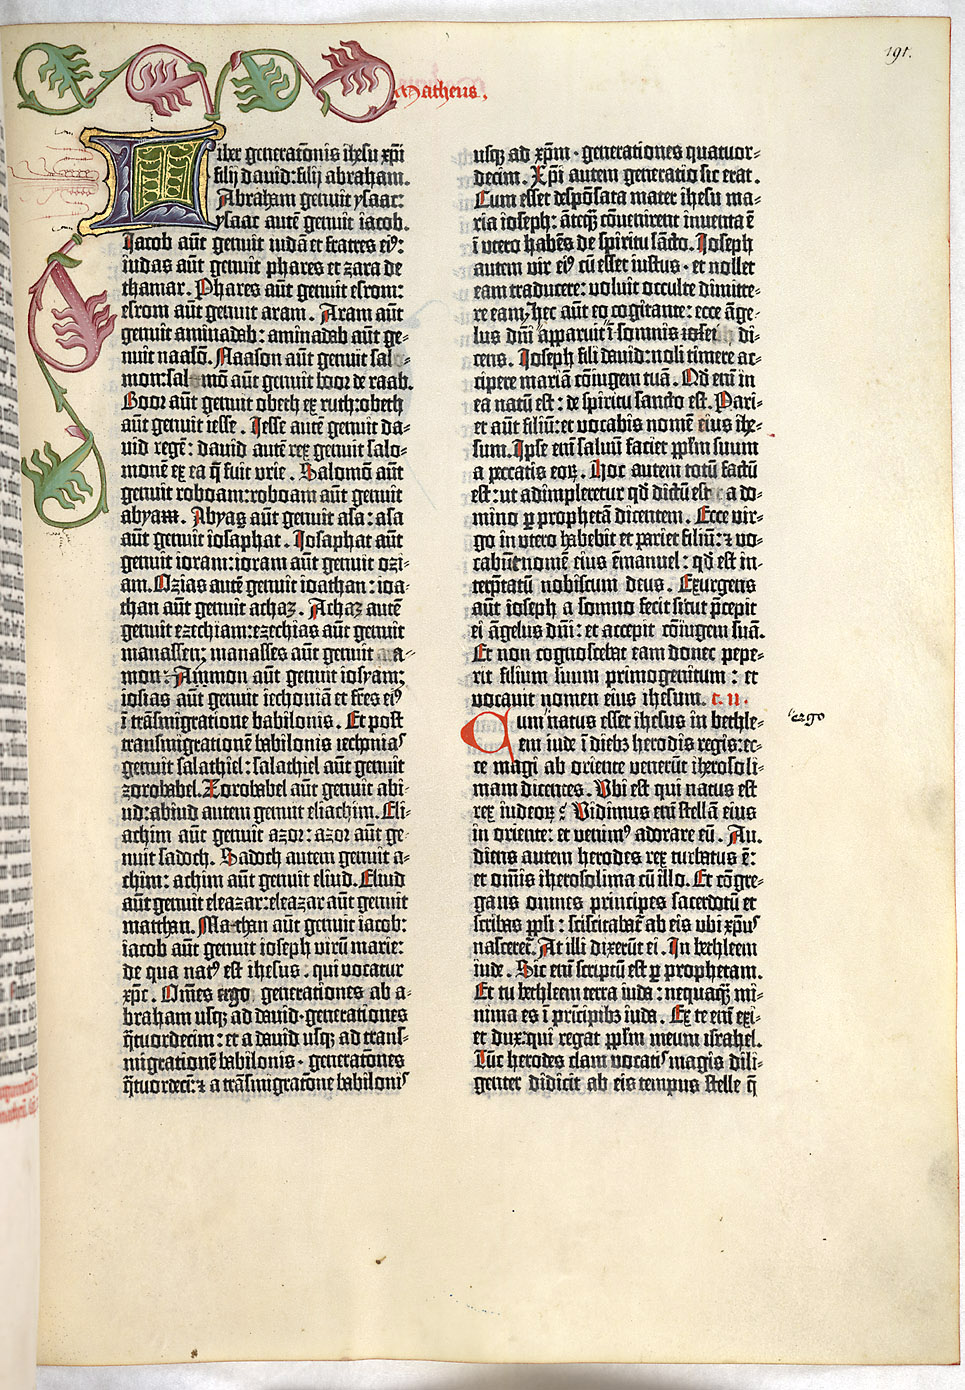 191.
Matheus.
Liber generationis ihesu xp̄i
filij dauid: filij abraham.
Abraham genuit ysaac:
ysaac autē genuit iacob.
Iacob aūt genuit iudā et fratres ei⁹:
iudas aūt genuit phares et zara de
thamar. Phares aūt genuit esrom:
esrom aūt genuit aram. Aram aūt
genuit aminadab: aminadab aūt ge-
nuit naasō. Naason aūt genuit sal
mon: salomō aūt genuit booz de raab.
Booz aūt genuit obeth ex ruth: obeth
aūt genuit iesse. Iesse autē genuit da-
uid regē: dauid autē rex genuit salo-
monē ex ea q̄ fuit vrie. Salomō aūt
genuit roboam: roboam aūt genuit
abyam. Abyas aūt genuit asa: asa
aūt genuit iosaphat. Iosaphat aūt
genuit ioram: ioram aūt genuit ozi-
am. Ozias autē genuit ioathan: ioa-
than aūt genuit achaz. Achaz autē
genuit ezechiam: ezechias aūt genuit
manassen: manasses aūt genuit a-
mon: Ammon aūt genuit iosyam:
iosias aūt genuit iechoniā et fr̄es ei⁹
ī trāsmigratione babilonis. Et post
transmigrationē babilonis iechonias
genuit salathiel: salathiel aūt genuit
zorobabel. Zorobabel aūt genuit abi-
ud: abiud autem genuit eliachim. Eli-
achim aūt genuit azor: azor aūt ge-
nuit sadoch. Sadoch autem genuit a-
chim: achim aūt genuit eliud. Eliud
aūt genuit eleazar: eleazar aūt genuit
matthan. Mathan aūt genuit iacob:
iacob aūt genuit ioseph virū marie:
de qua nat⁹ est ihesus. qui vocatur
xp̄c. Om̄es ergo generationes ab a-
braham usq; ad dauid. generationes
q̄tuordecim: et a dauid usq; ad trans-
migrationē babilonis. generatōnes
q̄tuordecī: ⁊ a trāsmigratōne babilonis
usq; ad xp̄m. generationes quatuor-
decim. Xp̄i autem generatio sic erat.
Cum esset despōsata mater ihesu ma-
ria ioseph: āteq̄ cōuenirent inuenta ē
ī vtero habēs de spiritu sācto. Ioseph
autem vir ei⁹ cū esset iustus. et nollet
eam traducere: voluit occulte dimitte-
re eam. hec aūt eo cogitante: ecce āge-
lus dn̄i apparuit ī somnis iosef di-
cens. Ioseph fili dauid: noli timere ac-
cipere mariā cōiugem tuā. Qd̄ enī in
ea natū est: de spiritu sancto est. Pari-
et aūt filiū: et vocabis nomē eius ihe-
sum. Ipse enī saluū faciet pp̄lm suum
a peccatis eoꝝ. Hoc autem totū factū
est: ut adimpleretur qd̄ dictū est a do-
mino ꝑ prophetā dicentem. Ecce vir-
go in vtero habebit et pariet filiū: ⁊ vo-
cabūt nomē eius ēmanuel: qd̄ est in-
terp̄tatū nobiscum deus. Exurgens
aūt ioseph a somno fecit sicut p̄cepit
ei āgelus dn̄i: et accepit cōiugem suā.
Et non cognoscebat eam donec pepe-
rit filium suum primogenitum: et
vocauit nomen eius ihesum. c. ii.
Cum natus esset ihesus in bethle-
ergo
em iude ī diebꝫ herodis regis: ec-
ce magi ab oriente venerūt iherosoli-
mam dicentes. Vbi est qui natus est
rex iudeoꝝ? Vidimus enī stellā eius
in oriente: et venim⁹ adorare eū. Au-
diens autem herodes rex turbatus ē:
et om̄is iherosolima cū illo. Et cōgre-
gans omnes principes sacerdotū et
scribas pp̄li: sciscitabat̄ ab eis vbi xp̄us
nasceret̄. At illi dixerūt ei. In bethleem
iude. Sic enī scriptū est ꝑ prophetam.
Et tu bethleem terra iuda: nequaq̄ mi-
nima es ī prīcipibꝫ iuda. Ex te enī exi-
et dux: qui regat pp̄lm meum israhel.
Tūc herodes clam vocatis magis dili-
genter didicit ab eis tempus stelle q̄